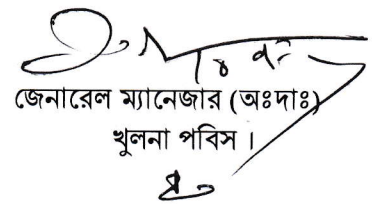 জেনারেল ম্যানেজার (অঃদাঃ)
খুলনা পবিস ।